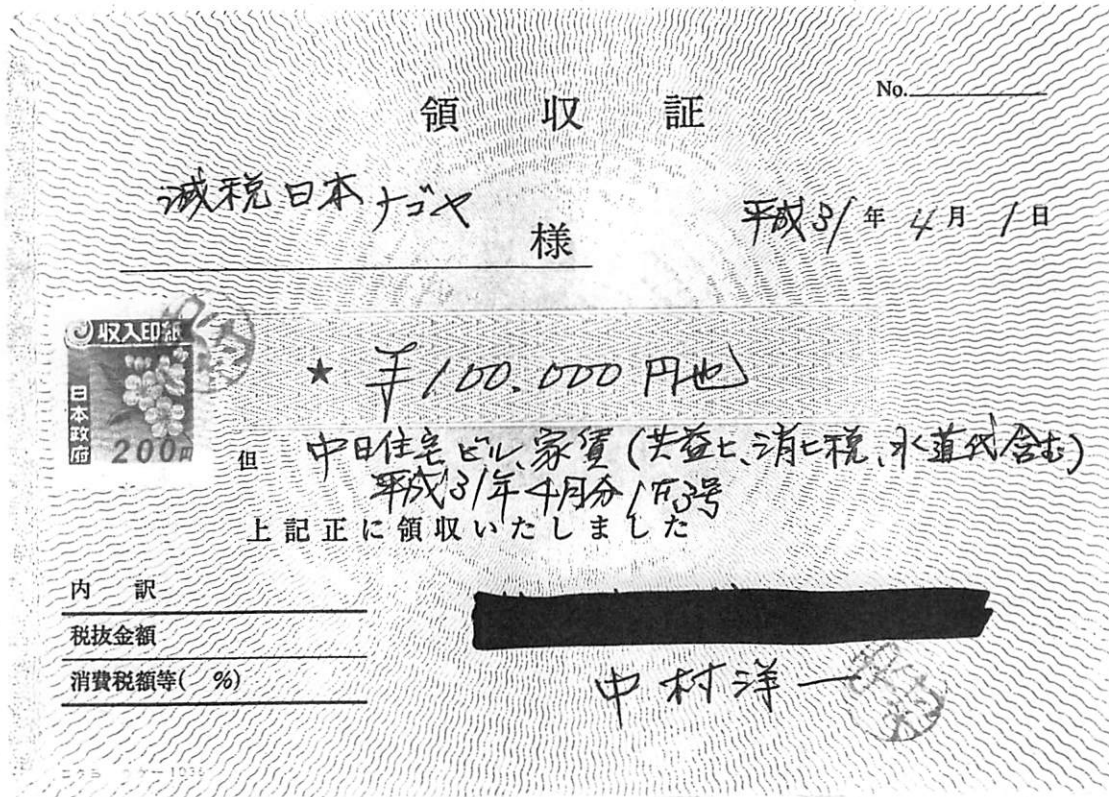 No.
領収証
減税日本ナゴヤ 様
平成31年4月1日
収入印紙
日本政府
200円
★ ¥100.000円也
但 中日住宅ビル、家賃(共益ヒ、消ヒ税、水道代含む)
平成31年4月分 1F3号
上記正に領収いたしました
内訳
税抜金額
消費税額等( %)
中村洋一